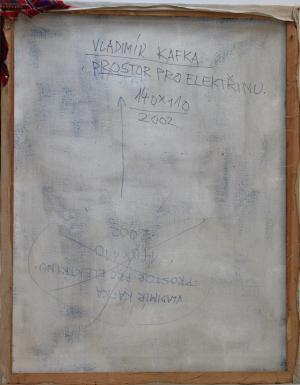 VLADIMÍR KAFKA
PROSTOR PRO ELEKTŘINU.
140×110
2002
VLADIMÍR KAFKA
PROSTOR PRO ELEKTŘINU.
140×110
2002